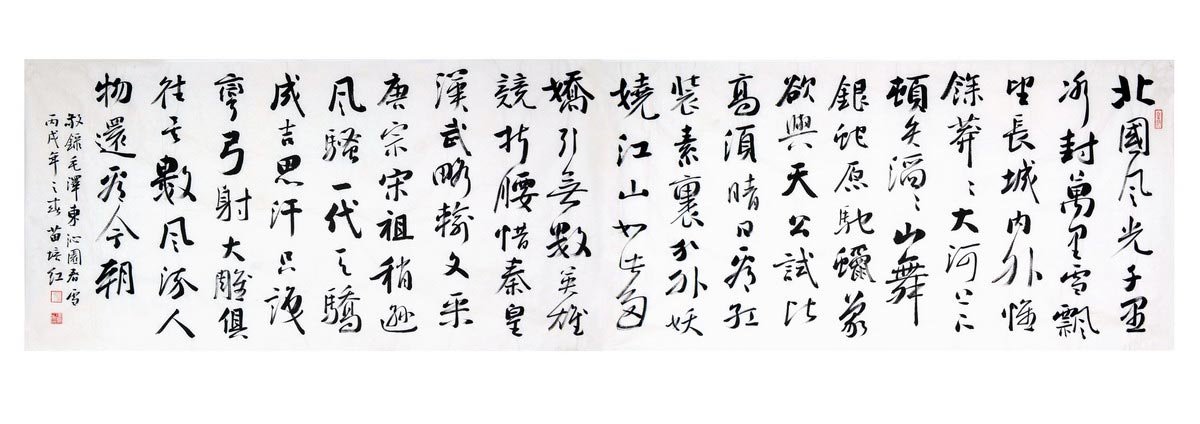 北國风光千里
冰封萬里雪飄
望長城内外惟
餘莽〻大河上下
頓失滔〻山舞
銀蛇原馳蠟象
欲與天公試比
高須晴日看红
装素裹分外妖
嬈江山如此多
嬌引無數英雄
競折腰惜秦皇
漢武略輸文采
唐宗宋祖稍遜
风騷一代天驕
成吉思汗只識
彎弓射大雕俱
往矣數风流人
物還看今朝
敬錄毛澤東沁園春雪
丙戌年之春苗培红